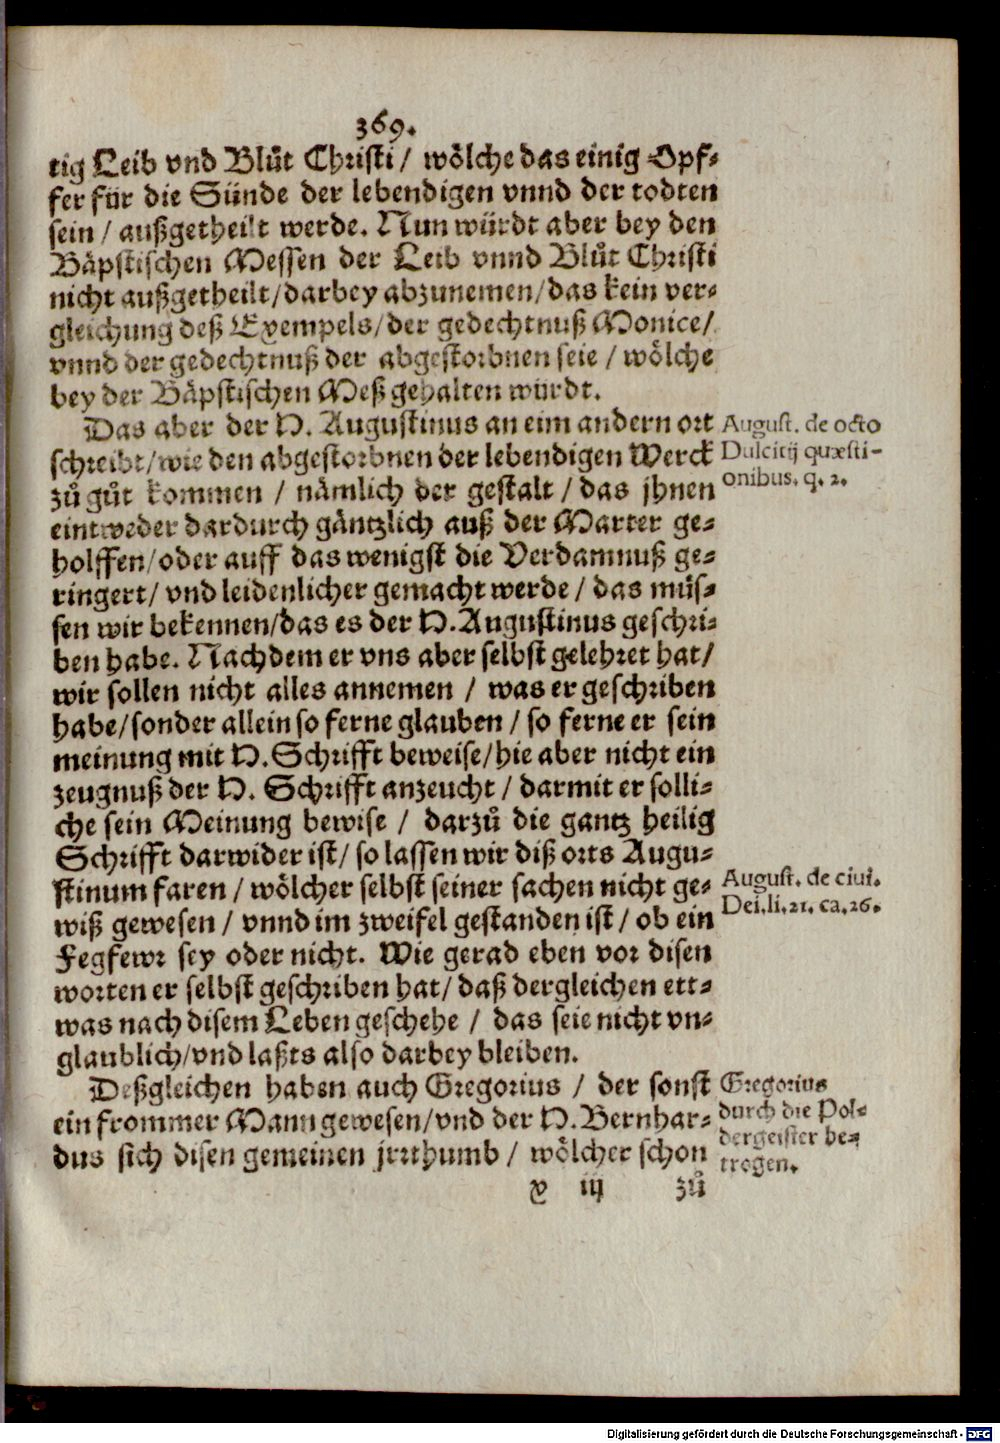 369.
tig Leib vnd Blůt Christi / wölche das einig Opf-
fer für die Sünde der lebendigen vnnd der todten
sein / außgetheilt werde. Nun würdt aber bey den
Bäpstischen Messen der Leib vnnd Blůt Christi
nicht außgetheilt/darbey abzunemen/das kein ver-
gleichung deß Exempels/der gedechtnuß Monice/
vnnd der gedechtnuß der abgestorbnen seie / wölche
bey der Bäpstischen Meß gehalten würdt.
Das aber der H. Augustinus an eim andern ort
August. de octo
schreibt/wie den abgestorbnen der lebendigen Werck
Dulcitij quæsti-
zů gůt kommen / nämlich der gestalt / das jhnen
onibus. q. 2.
eintweder dardurch gäntzlich auß der Marter ge-
holffen/oder auff das wenigst die Verdamnuß ge-
ringert/ vnd leidenlicher gemacht werde / das müs-
sen wir bekennen/das es der H. Augustinus geschri-
ben habe. Nachdem er vns aber selbst gelehret hat/
wir sollen nicht alles annemen / was er geschriben
habe/sonder allein so ferne glauben / so ferne er sein
meinung mit H. Schrifft beweise/hie aber nicht ein
zeugnuß der H. Schrifft anzeucht / darmit er solli-
che sein Meinung bewise / darzů die gantz heilig
Schrifft darwider ist/ so lassen wir diß orts Augu-
stinum faren / wölcher selbst seiner sachen nicht ge-
August. de ciui.
wiß gewesen / vnnd im zweifel gestanden ist / ob ein
Dei.li.21. ca.26.
Fegfewr sey oder nicht. Wie gerad eben vor disen
worten er selbst geschriben hat/ daß dergleichen ett-
was nach disem Leben geschehe / das seie nicht vn-
glaublich/vnd laßts also darbey bleiben.
Deßgleichen haben auch Gregorius / der sonst
Gregorius
ein frommer Mann gewesen/vnd der H. Bernhar-
durch die Pol-
dergeister be-
dus sich disen gemeinen jrrthumb / wölcher schon
trogen.
x iij zů
Digitalisierung gefördert durch die Deutsche Forschungsgemeinschaft - DFG